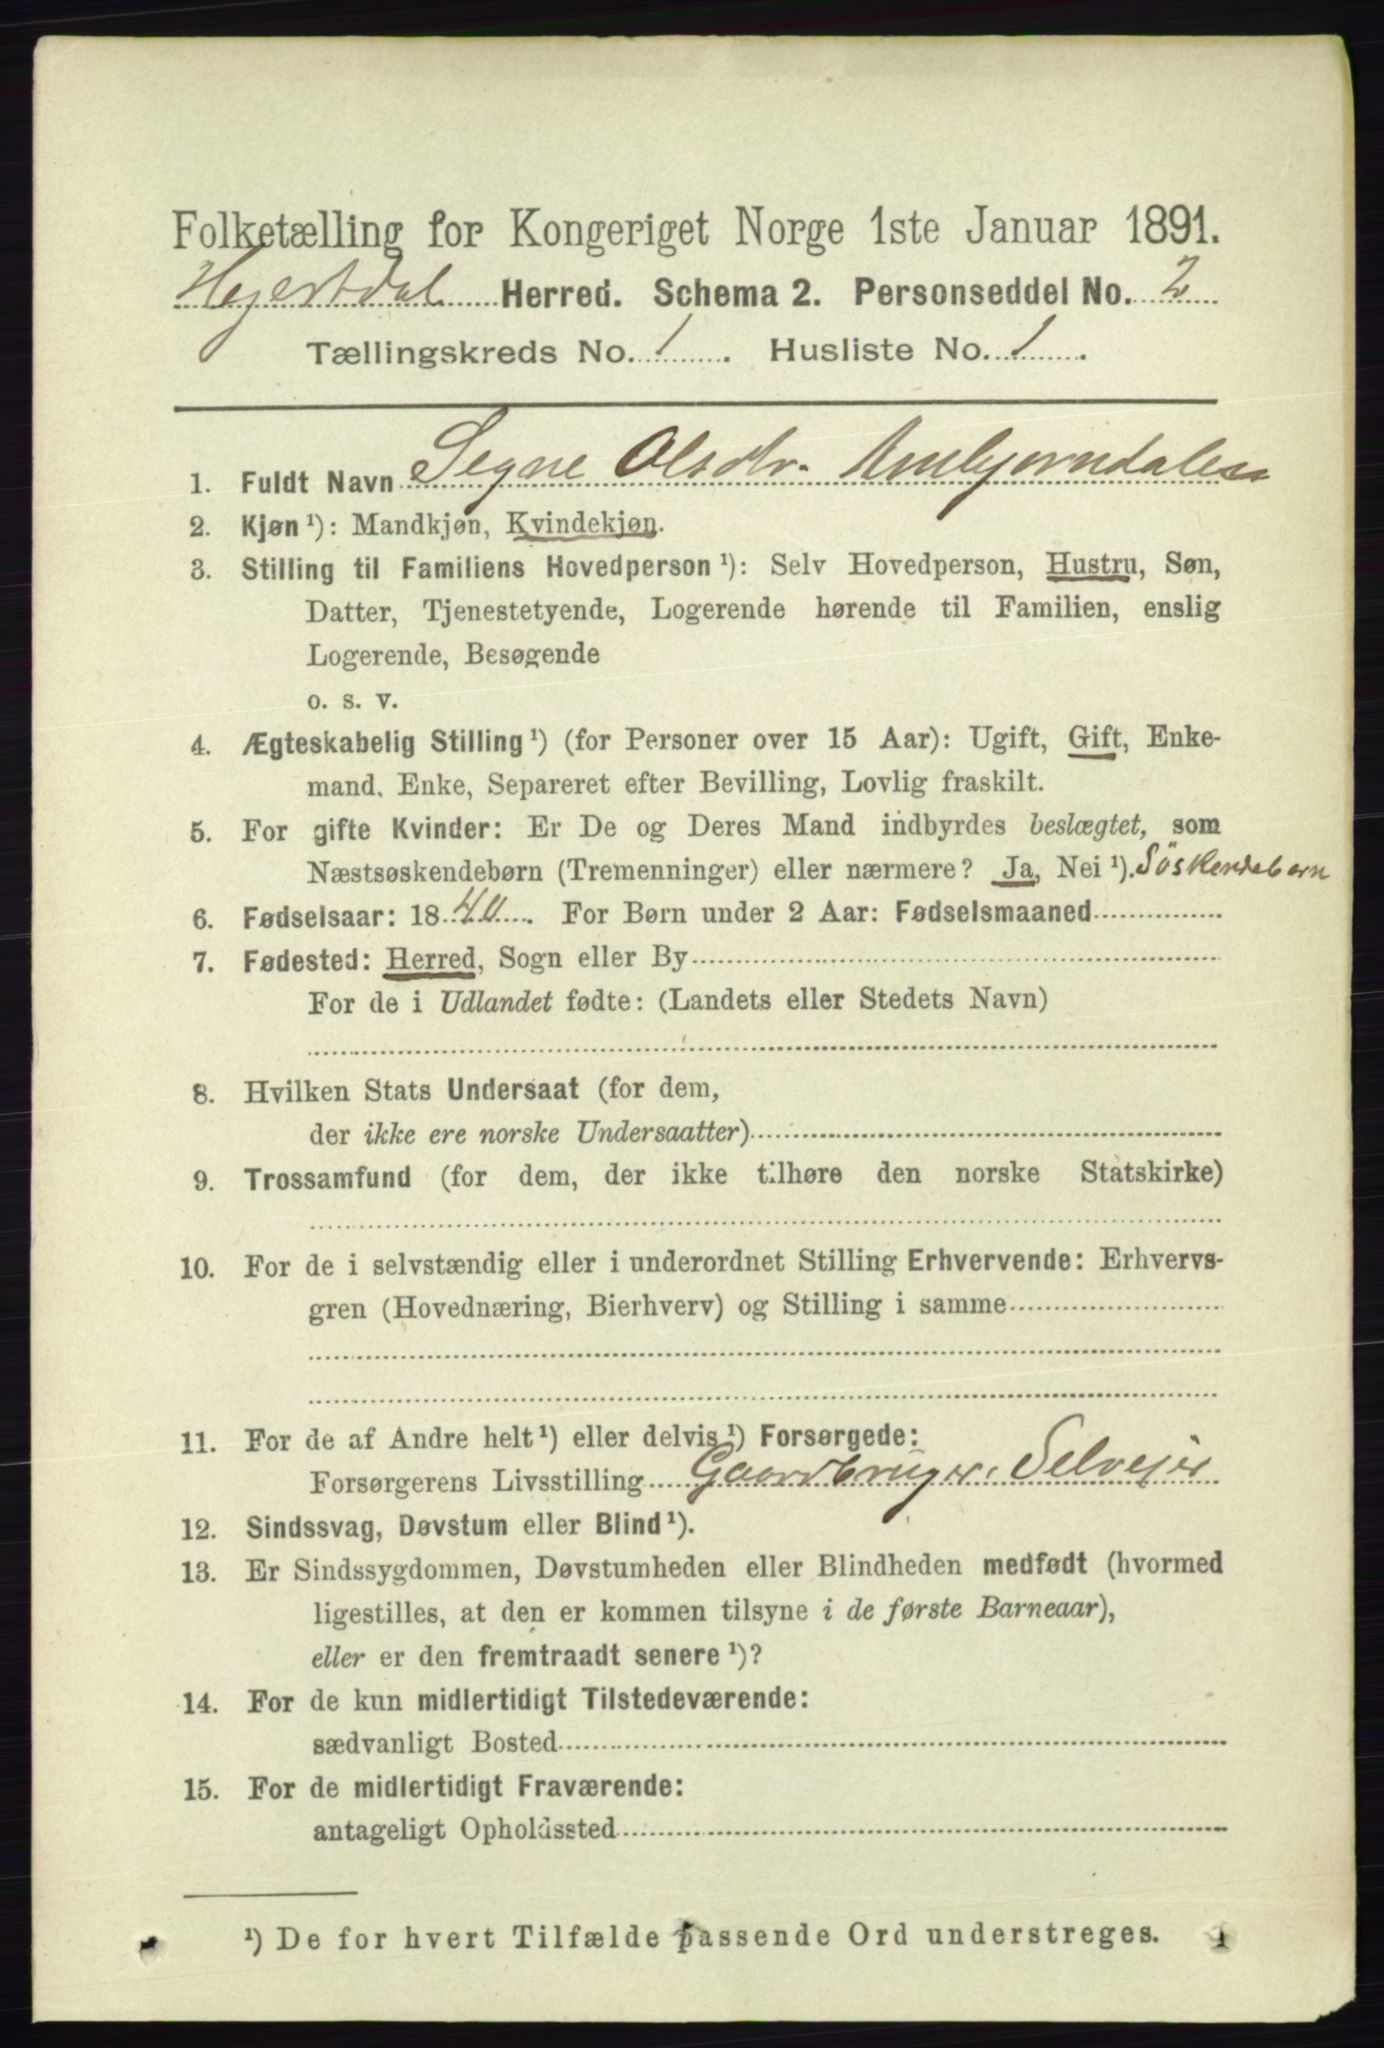 Folketælling for Kongeriget Norge 1ste Januar 1891.
Hjertdal Herred. Schema 2. Personseddel No. 2
Tællingskreds No. 1. Husliste No. 1.
1. Fuldt Navn Segne Olsdtr. Ambjørndalen
2. Kjøn¹): Mandkjøn, Kvindekjøn.
3. Stilling til Familiens Hovedperson¹): Selv Hovedperson, Hustru, Søn,
Datter, Tjenestetyende, Logerende hørende til Familien, enslig
Logerende, Besøgende
o. s. v.
4. Ægteskabelig Stilling¹) (for Personer over 15 Aar): Ugift, Gift, Enke-
mand, Enke, Separeret efter Bevilling, Lovlig fraskilt.
5. For gifte Kvinder: Er De og Deres Mand indbyrdes beslægtet, som
Næstsøskendebørn (Tremenninger) eller nærmere? Ja, Nei¹). Söskendebørn
6. Fødselsaar: 1840. For Børn under 2 Aar: Fødselsmaaned
7. Fødested: Herred, Sogn eller By
For de i Udlandet fødte: (Landets eller Stedets Navn)
8. Hvilken Stats Undersaat (for dem,
der ikke ere norske Undersaatter)
9. Trossamfund (for dem, der ikke tilhøre den norske Statskirke)
10. For de i selvstændig eller i underordnet Stilling Erhvervende: Erhvervs-
gren (Hovednæring, Bierhverv) og Stilling i samme
11. For de af Andre helt¹) eller delvis¹) Forsørgede:
Forsørgerens Livsstilling Gaardbruger, Selvejer
12. Sindssvag, Døvstum eller Blind¹).
13. Er Sindssygdommen, Døvstumheden eller Blindheden medfødt (hvormed
ligestilles, at den er kommen tilsyne i de første Barneaar),
eller er den fremtraadt senere¹)?
14. For de kun midlertidigt Tilstedeværende:
sædvanligt Bosted
15. For de midlertidigt Fraværende:
antageligt Opholdssted
¹) De for hvert Tilfælde passende Ord understreges. 1